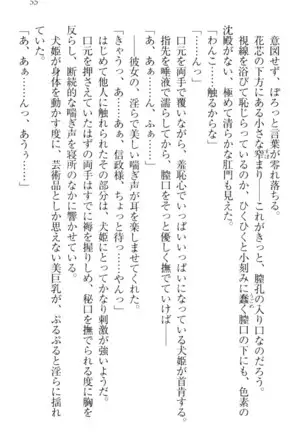 意図せず、ぽろっと言葉が零れ落ちる。
花芯の下方にある小さな窄まり――これがきっと、膣孔の入り口なのだろう。
視線を浴びて恥じらっているのか、ひくひくと小刻みに蠢く膣口の下にも、色素の
沈殿がない、極めて清らかな肛門も見えている。
「わんこ……触るからな」
「……んっ」
口元を両手で覆いながら、羞恥心でいっぱいいっぱいになっている犬姫が首肯する。
指先を唾液で濡らしてから、膣口をそっと優しく撫でていけば――
――彼女の、淫らで美しい喘ぎ声が耳を楽しませてくれた。
「きゃうっ、あ……あっ、信政様、ちょっと待っ……やんっ」
「あ、あぁ……んっ」
初めて他人に触れられたその部分は、犬姫にとってかなり刺激が強いようだ。
口元を押さえていたはずの両手はすでに褥を握りしめ、秘口を撫でられる度に胸を
反らし、断続的な喘ぎ声を寝所のなかに響かせている。
「あ、あぁ……んっ、あうぅ……」
犬姫が身体を動かす度に、芸術品としか思えない美巨乳が、ぷるぷると淫らに揺れ
ていた。